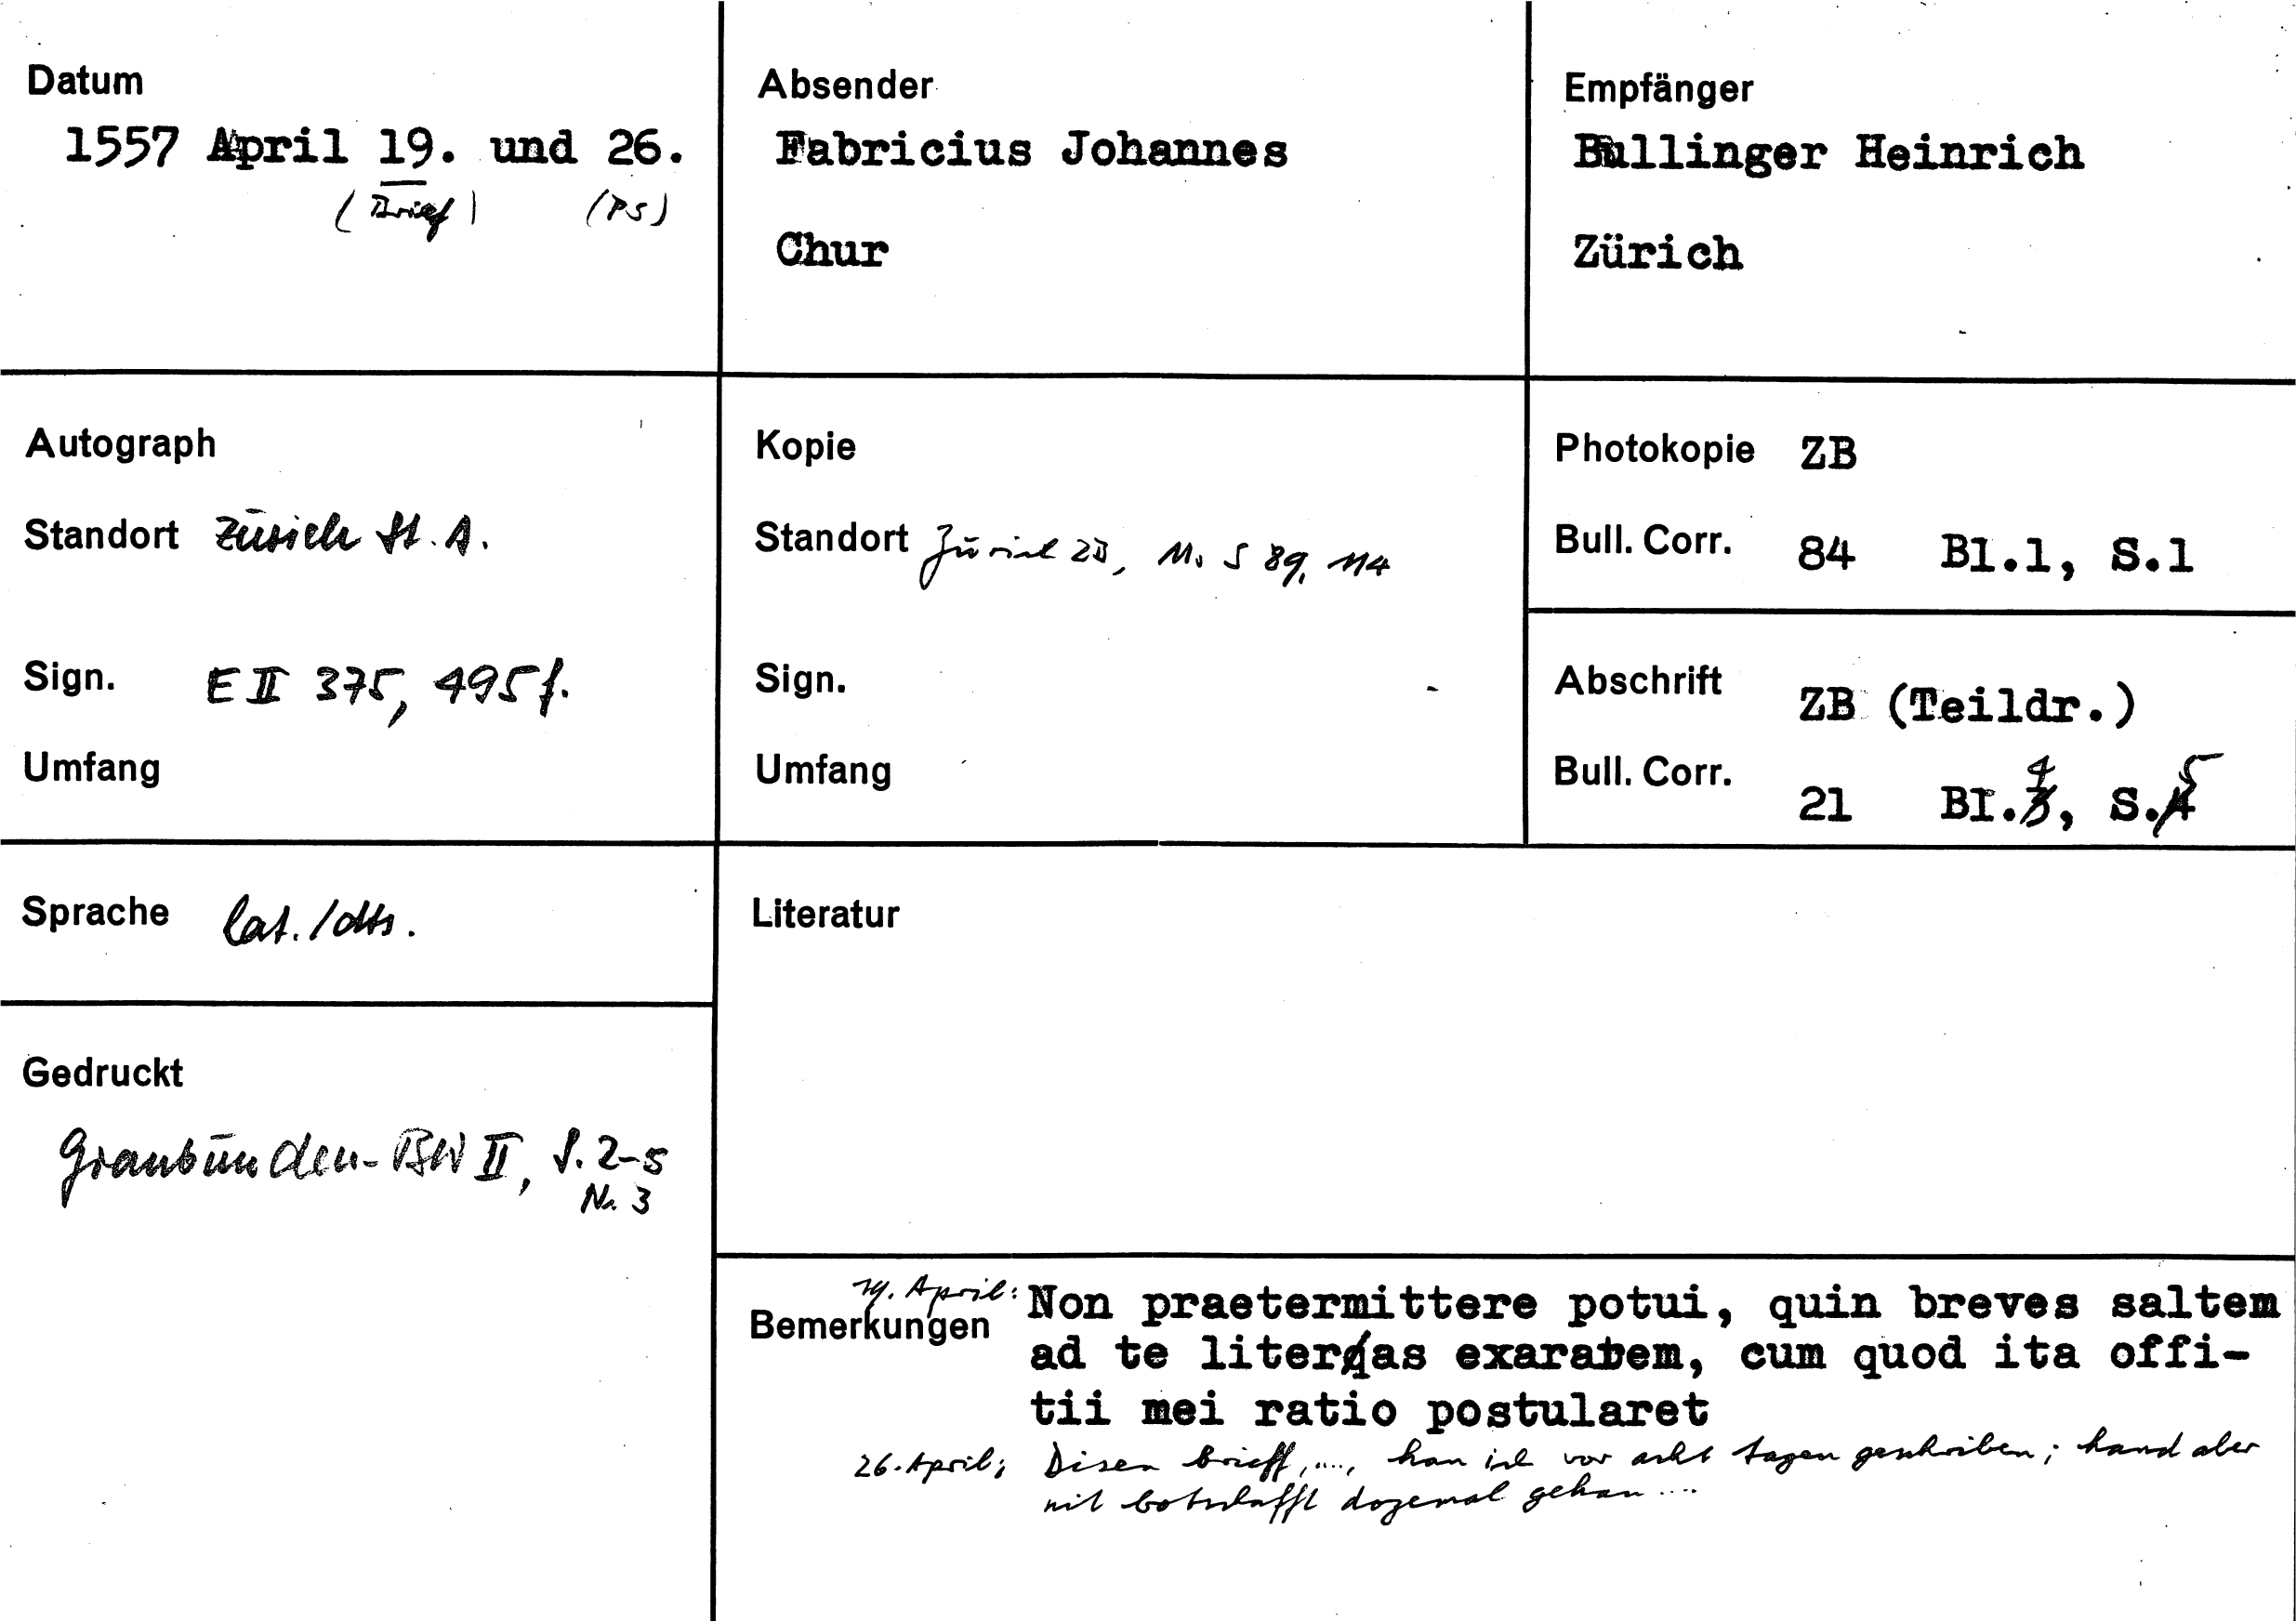 Datum
1557 April 19. und 26.
(Brief) (PS)
Absender
Fabricius Johannes
Chur
Empfänger
Bullinger Heinrich
Zürich
Autograph
Standort Zürich St. A.
Sign. E II 375, 495f.
Umfang
Kopie
Standort Zürich ZB, Ms S 89, 114
Sign.
Umfang
Photokopie ZB
Bull. Corr. 84 Bl.1, S.1
Abschrift ZB (Teildr.)
Bull. Corr. 21 Bl.4, S.5
Sprache lat./dts.
Literatur
Gedruckt
Graubünden-BW II, S. 2-5
Nr. 3
Bemerkungen
19. April: Non praetermittere potui, quin breves saltem
ad te literas exararem, cum quod ita offi-
tii mei ratio postularet
26. April: Disen brieff, ..., han ich vor acht tagen geschriben; hand aber
nit botschafft dozemal gehan ....